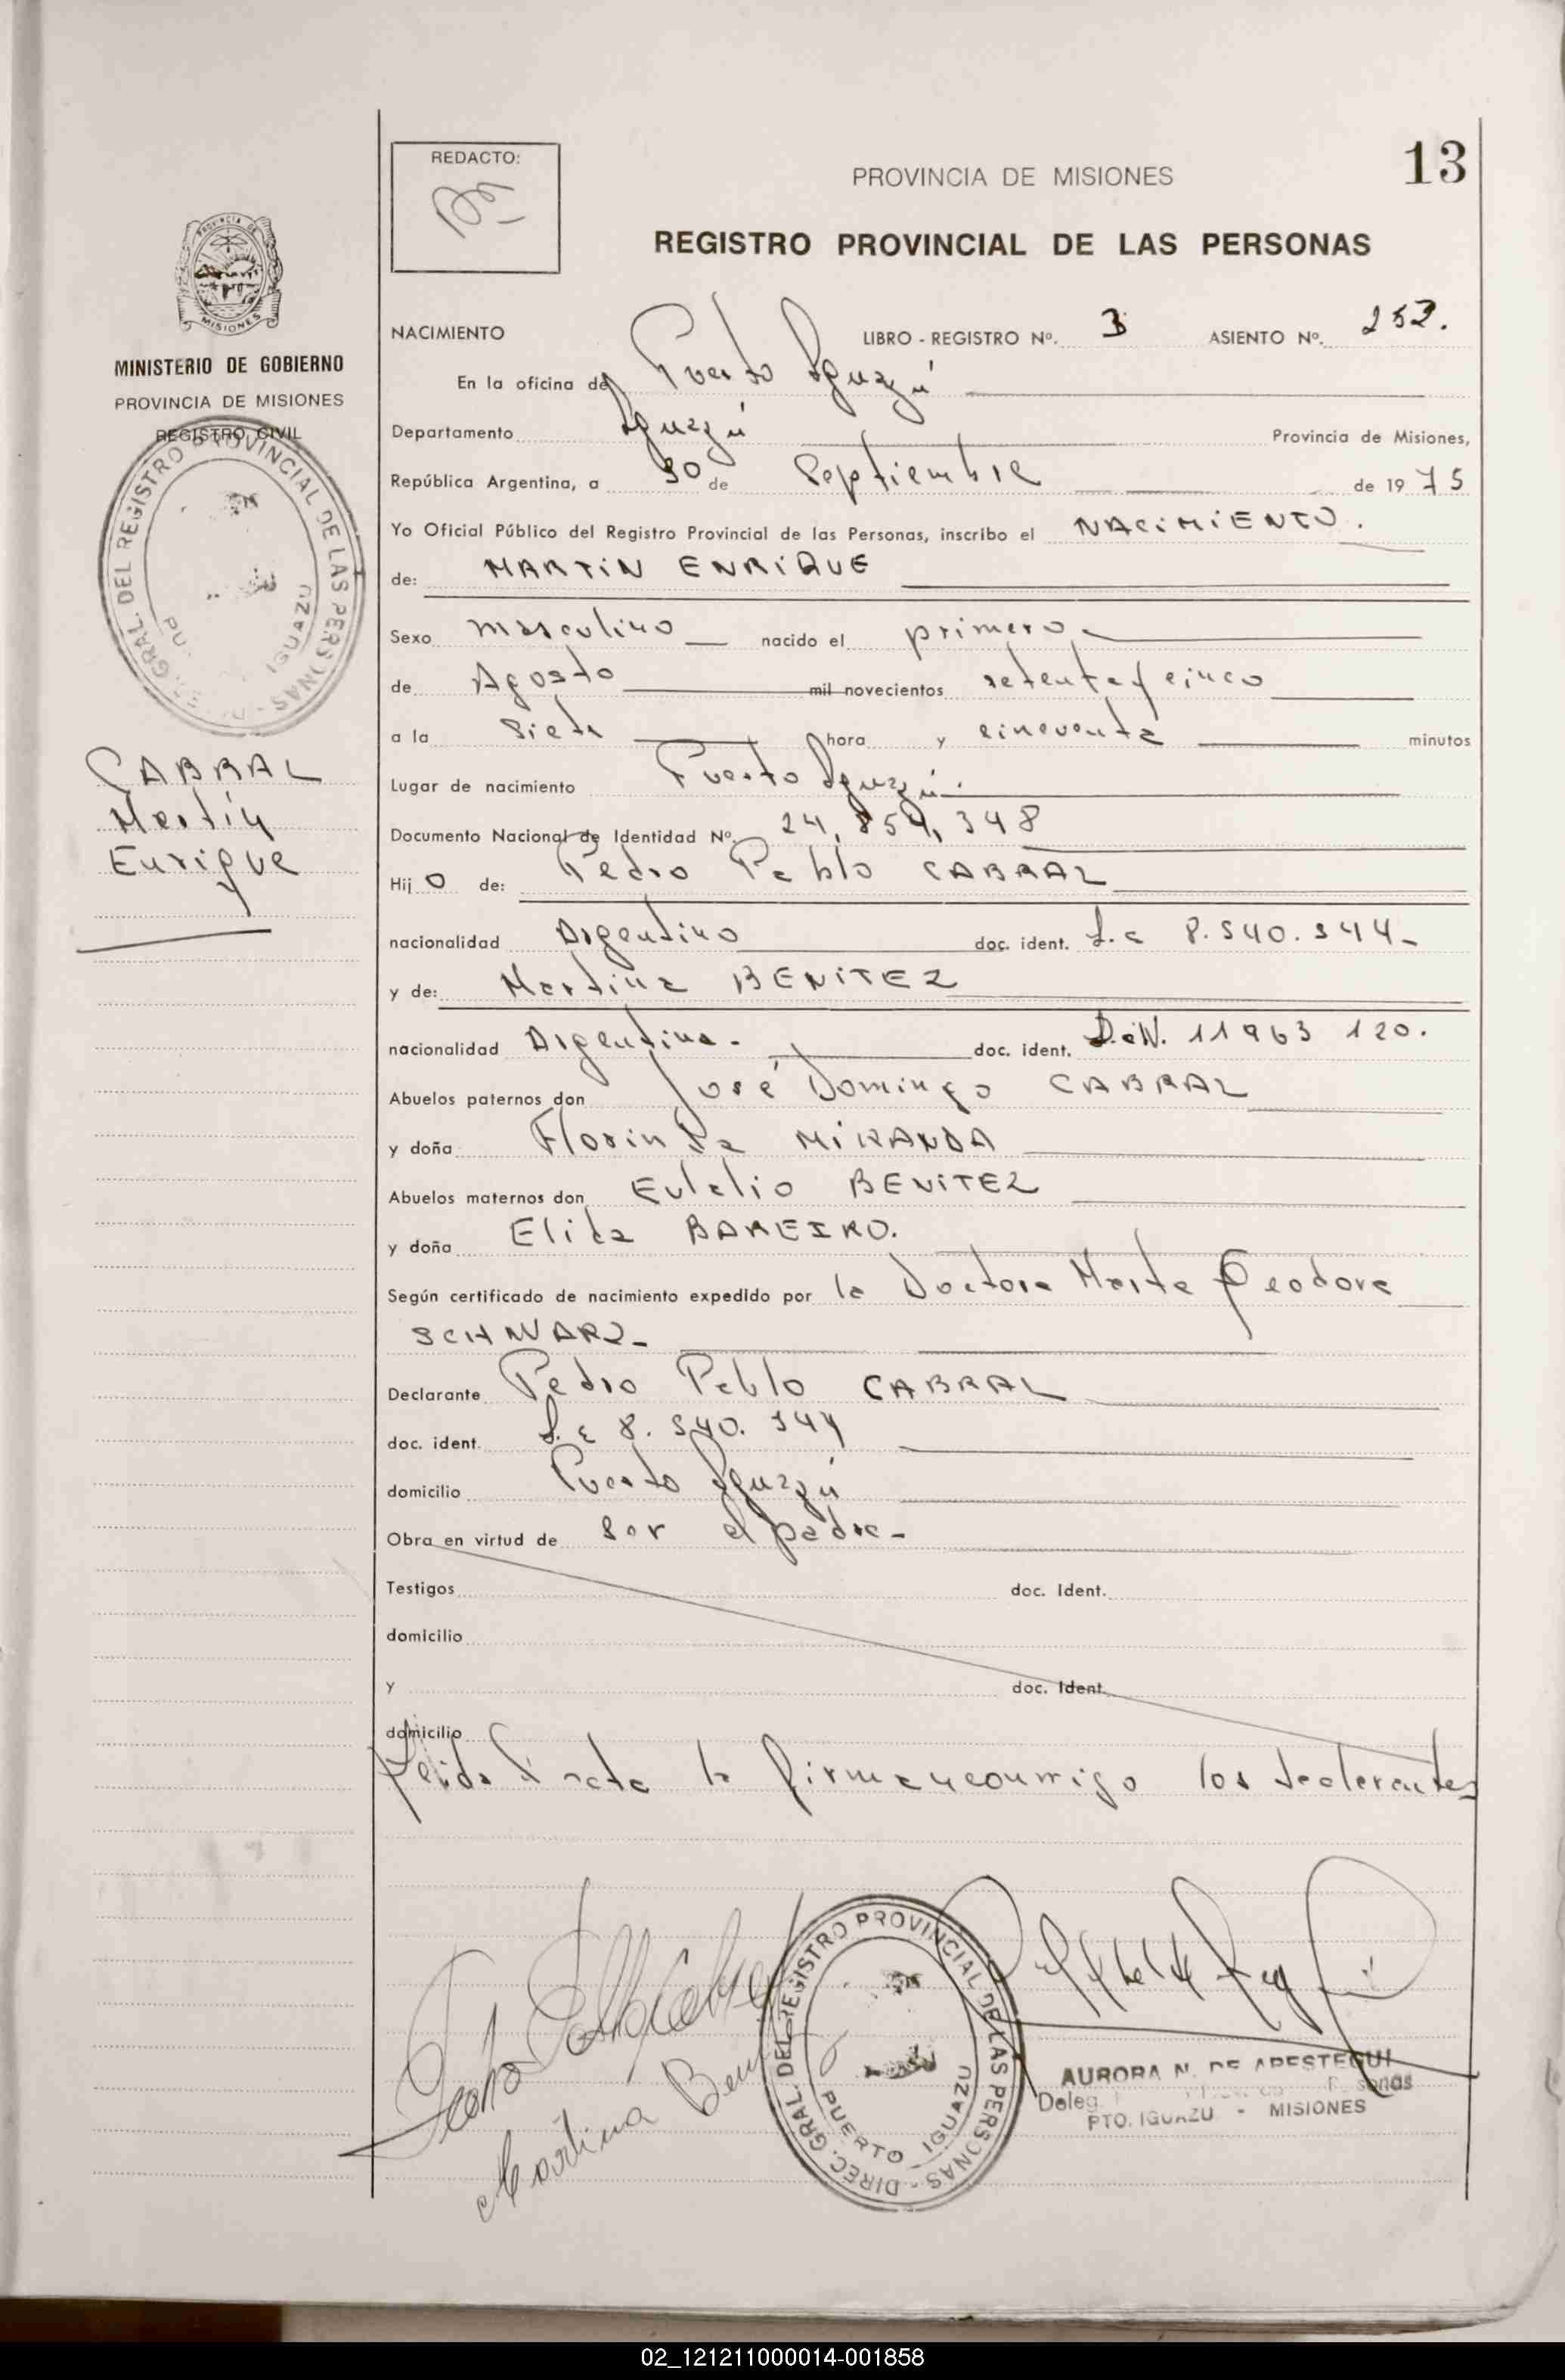 REDACTO:
PROVINCIA DE MISIONES
13
REGISTRO PROVINCIAL DE LAS PERSONAS
MISIONES
MINISTERIO DE GOBIERNO
PROVINCIA DE MISIONES
REGISTRO CIVIL
DEL REGISTRO PROVINCIAL DE LAS PERSONAS
IGUAZU
CABRAL
Martín
Enrique
NACIMIENTO LIBRO - REGISTRO Nº. 3 ASIENTO Nº. 252.
En la oficina de Puerto Iguazú
Departamento Iguazú Provincia de Misiones,
República Argentina, a 30 de Septiembre de 19 75
Yo Oficial Público del Registro Provincial de las Personas, inscribo el NACIMIENTO.
de: MARTIN ENRIQUE
Sexo masculino nacido el primero
de Agosto mil novecientos setenta y cinco
a la siete hora y cincuenta minutos
Lugar de nacimiento Puerto Iguazú.
Documento Nacional de Identidad Nº. 24,854,348
Hij o de: Pedro Pablo CABRAL
nacionalidad Argentino doc. ident. L.E 8.540.344-
y de: Martina BENITEZ
nacionalidad Argentina. doc. ident. D.N. 11963 120.
Abuelos paternos don José Domingo CABRAL
y doña Florinda MIRANDA
Abuelos maternos don Eulalio BENITEZ
y doña Elida BAREIRO.
Según certificado de nacimiento expedido por la Doctora Marta Teodora
SCHWARZ-
Declarante Pedro Pablo CABRAL
doc. ident. L.E 8.540.344
domicilio Puerto Iguazú
Obra en virtud de ser el padre-
Testigos doc. Ident.
domicilio
y doc. Ident.
domicilio
Leida el acta la firman conmigo los declarantes
Martina
DIREC. GRAL. DEL REGISTRO PROVINCIAL DE LAS PERSONAS
PUERTO IGUAZU
AURORA N. DE ARESTEGUI
PTO. IGUAZU - MISIONES
02_121211000014-001858